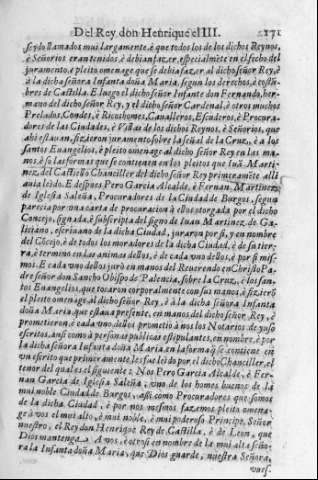 Del Rey don Henrique el III. 171
seydo llamados mui largamente, è que todos los de los dichos Reynos,
è Señorios eran tenidos, è debian fazer, especialmēte en el fecho del
juramento, è pleito omenage que se debia fazer, al dicho señor Rey, è
à la dicha señora Infanta doña Maria, segun los derechos, è costū-
bres de Castilla. E luego el dicho señor Infante don Fernando, her-
mano del dicho señor Rey, y el dicho señor Cardenal, è otros muchos
Prelados, Condes, è Ricoshomes, Cavalleros, Escuderos, è Procura-
dores de las Ciudades, è Villas de los dichos Reynos, è Señorios, que
ahi estavan, fizieron juramento sobre la señal de la Cruz, è a los
santos Euangelios, è pleito omenage al dicho señor Rey en las ma-
nos, è so las formas que se contienen en los pleitos que Iuā Marti-
nez, del Castillo Chanciller del dicho señor Rey primeramēte alli
avia leido. E despues Pero Garcia Alcalde, è Fernan Martinez
de Iglesia Saleña, Procuradores de la Ciudad de Burgos, segun
parecia por una carta de procuracion à ellos otorgada por el dicho
Concejo, signada, è subscripta del signo de Iuan Martinez, de Ga-
liciano, escrivano de la dicha Ciudad, juraron por si, y en nombre
del Cōcejo, è de todos los moradores de la dicha Ciudad, è de su tier-
ra, è termino en las animas dellos, è de cada vno dellos, è por si mis-
mos. E cada vno dellos juró en manos del Reverendo en Christo Pa-
dre señor don Sancho Obispo de Palencia, sobre la Cruz, è los san-
tos Euangelios, que tocaron corporalmente con sus manos, è fizierō
el pleito omenage, al dicho señor Rey, è à la dicha señora Infanta
doña Maria, que estava presente, en manos del dicho señor Rey, è
prometieron, è cada vno dellos prometió à nos los Notarios de yuso
escritos, ansi como à personas publicas estipulantes, en nombre, è por
la dicha señora Infanta doña Maria, en la forma q̄ se contiene en
vn escrito que primeramente les fue leido por el dicho Chanciller, el
tenor del qual es el siguiente. Nos Pero Garcia Alcalde, è Fer-
nan Garcia de Iglesia Saleña, vno de los homes buenos de la
mui noble Ciudad de Burgos, assi como Procuradores que somos
de la dicha Ciudad, è por nos mesmos fazemos pleito omena-
ge à vos el mui alto, è mui noble, è mui poderoso Principe, Señor
nuestro, el Rey don Henrique Rey de Castilla, è de Leon, que
Dios mantenga. A vos, è otrosi en nombre de la mui alta seño-
ra la Infanta doña Maria, que Dios guarde, nuestra Señora,
vues-